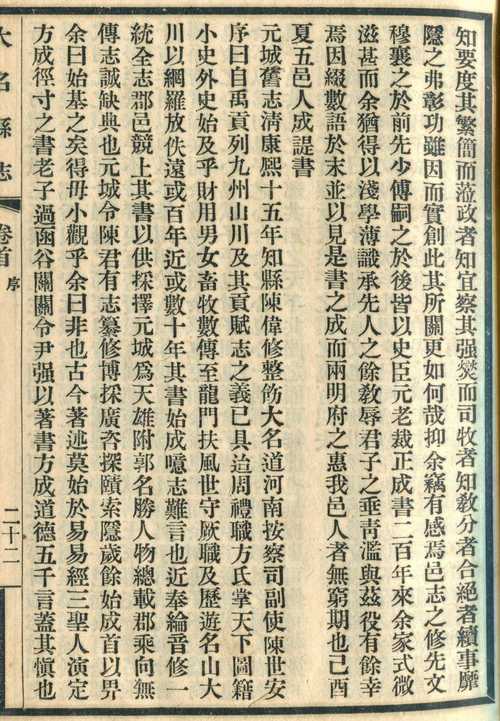 知要度其繁簡而蒞政者知宜察其强獘而司牧者知敎分者合絕者續事靡
隱之弗彰功雖因而實創此其所關更如何哉抑余竊有感焉邑志之修先文
穆襄之於前先少傅嗣之於後皆以史臣元老裁正成書二百年來余家式微
滋甚而余猶得以淺學薄識承先人之餘敎辱君子之垂靑濫與茲役有餘幸
焉因綴數語於末並以見是書之成而兩明府之惠我邑人者無窮期也己酉
夏五邑人成諟書
元城舊志淸康熙十五年知縣陳偉修整飭大名道河南按察司副使陳世安
序曰自禹貢列九州山川及其貢賦志之義已具迨周禮職方氏掌天下圖籍
小史外史始及乎財用男女畜牧數傳至龍門扶風世守厥職及歷遊名山大
川以網羅放佚遠或百年近或數十年其書始成噫志難言也近奉綸音修一
統全志郡邑競上其書以供採擇元城爲天雄附郭名勝人物總載郡乘向無
傳志誠缺典也元城令陳君有志纂修博採廣咨探賾索隱歲餘始成首以畀
余曰始基之矣得毋小觀乎余曰非也古今著述莫始於易易經三聖人演定
方成徑寸之書老子過函谷關關令尹强以著書方成道德五千言蓋其愼也
大名縣志
卷首
序
二十二